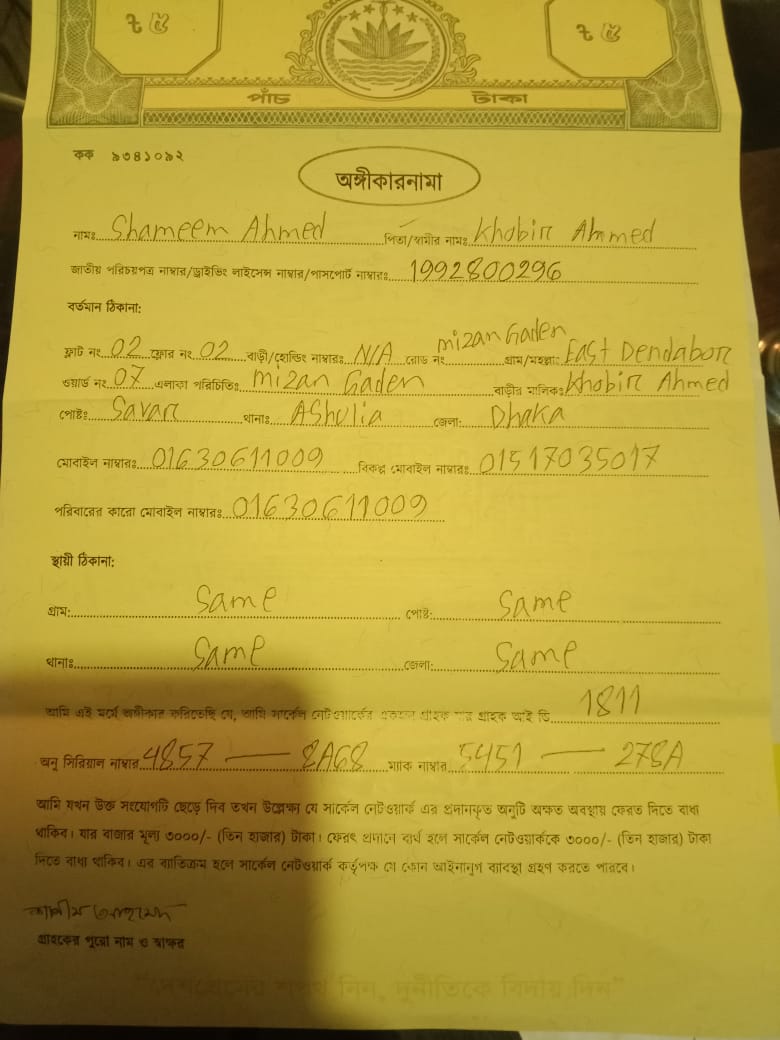 ৳ ৫ ৳ ৫
পাঁচ টাকা
কক ৯৩৪১০৯২
অঙ্গীকারনামা
নামঃ Shameem Ahmed পিতা/স্বামীর নামঃ Khobir Ahmed
জাতীয় পরিচয়পত্র নাম্বার/ড্রাইভিং লাইসেন্স নাম্বার/পাসপোর্ট নাম্বারঃ 1992800296
বর্তমান ঠিকানা:
ফ্লাট নং 02 ফ্লোর নং 02 বাড়ী/হোল্ডিং নাম্বারঃ N/A রোড নং mizan Gaden গ্রাম/মহল্লা: East Dendabor
ওয়ার্ড নং 07 এলাকা পরিচিতি: mizan Gaden বাড়ীর মালিকঃ Khobir Ahmed
পোষ্টঃ Savar থানাঃ AShulia জেলা: Dhaka
মোবাইল নাম্বারঃ 01630611009 বিকল্প মোবাইল নাম্বারঃ 01517035017
পরিবারের কারো মোবাইল নাম্বারঃ 01630611009
স্থায়ী ঠিকানা:
গ্রাম: Same পোষ্ট: Same
থানাঃ Same জেলা: Same
আমি এই মর্মে অঙ্গীকার করিতেছি যে, আমি সার্কেল নেটওয়ার্কের একজন গ্রাহক যার গ্রাহক আই ডি 1811
অনু সিরিয়াল নাম্বার 4857 — 8A68 ম্যাক নাম্বার 5451 — 278A
আমি যখন উক্ত সংযোগটি ছেড়ে দিব তখন উল্লেক্ষ্য যে সার্কেল নেটওয়ার্ক এর প্রদানকৃত অনুটি অক্ষত অবস্থায় ফেরত দিতে বাধ্য
থাকিব। যার বাজার মূল্য ৩০০০/- (তিন হাজার) টাকা। ফেরৎ প্রদানে ব্যর্থ হলে সার্কেল নেটওয়ার্ককে ৩০০০/- (তিন হাজার) টাকা
দিতে বাধ্য থাকিব। এর ব্যতিক্রম হলে সার্কেল নেটওয়ার্ক কর্তৃপক্ষ যে কোন আইনানুগ ব্যবস্থা গ্রহণ করতে পারবে।
শামীম আহমেদ
গ্রাহকের পুরো নাম ও স্বাক্ষর
"দেশপ্রেমের শপথ নিন, দুর্নীতিকে বিদায় দিন"